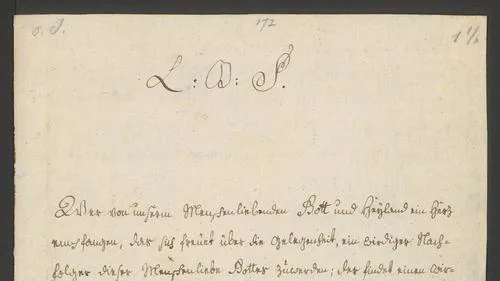 o. J.
172
1 1/2
L: B: S.
Wer von unserm Menschenliebenden Gott und Heyland ein Herz
empfangen, das sich freuet über die Gelegenheit, ein würdiger Nach-
folger dieser Menschenliebe Gottes zuwerden; der findet einen wir-